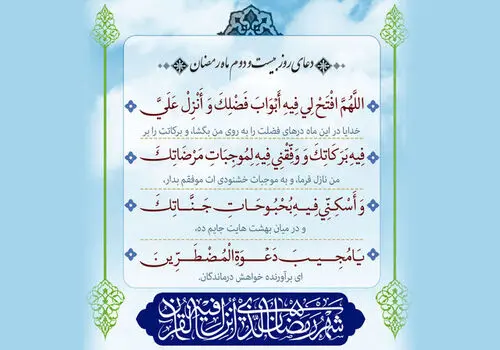 دعای روز بیست و دوم ماه رمضان
اللَّهُمَّ افْتَحْ لِي فِيهِ أَبْوَابَ فَضْلِكَ وَ أَنْزِلْ عَلَيَّ
خدایا در این ماه درهای فضلت را به روی من بگشا، و برکاتت را بر
فِيهِ بَرَكَاتِكَ وَ وَفِّقْنِي فِيهِ لِمُوجِبَاتِ مَرْضَاتِكَ
من نازل فرما، و به موجبات خشنودی ات موفقم بدار،
وَ أَسْكِنِّي فِيهِ بُحْبُوحَاتِ جَنَّاتِكَ
و در میان بهشت هایت جایم ده،
يَا مُجِيبَ دَعْوَةِ الْمُضْطَرِّينَ
ای برآورنده خواهش درماندگان.
شهر رمضان الذی أنزل فیه القرآن